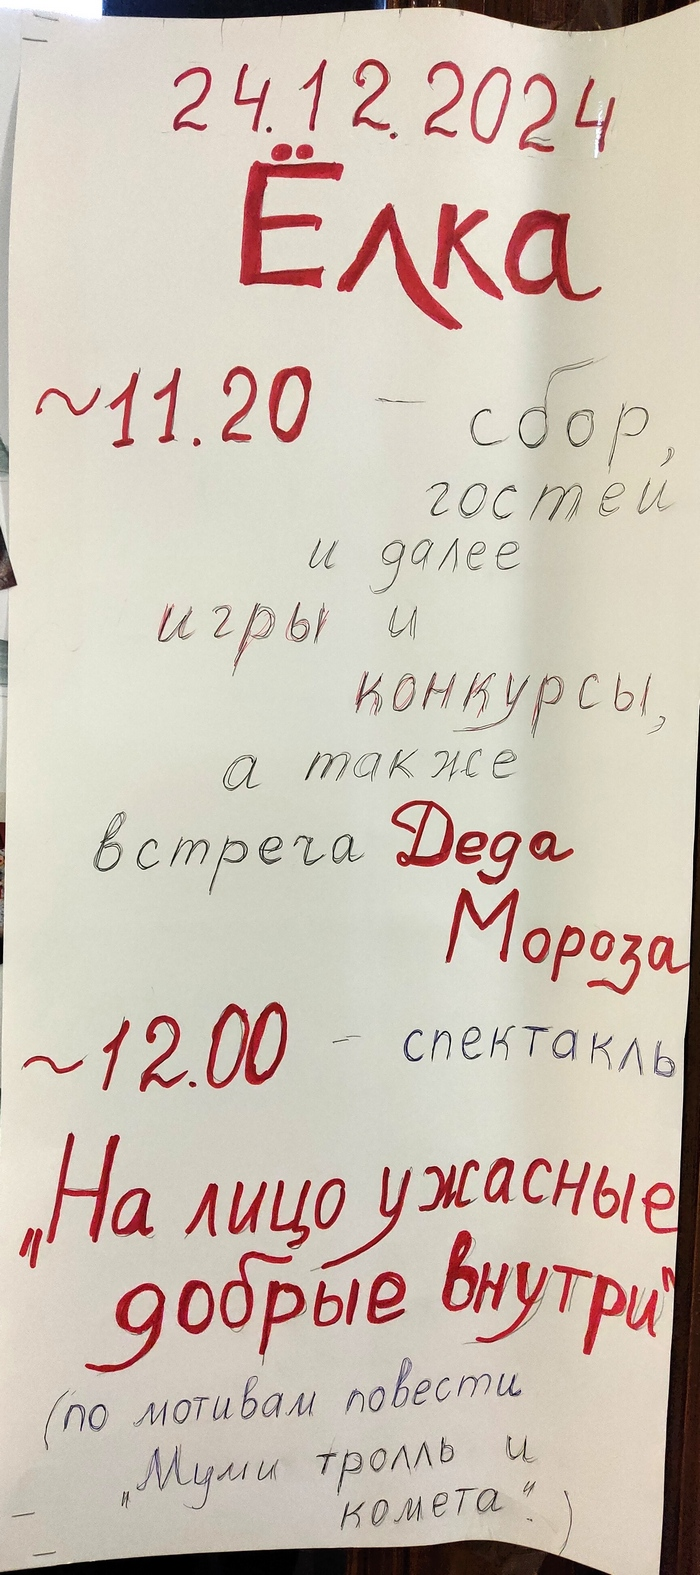 24.12.2024
Ёлка
~11.20 – сбор,
гостей
и далее
игры и
конкурсы,
а также
встреча Деда
Мороза
~12.00 – спектакль
„На лицо ужасные
добрые внутри"
(по мотивам повести
„Муми тролль и
комета".)